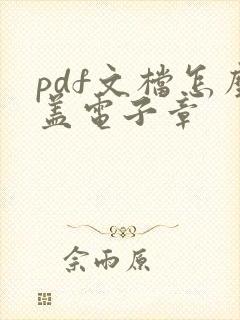 pdf文檔怎麼
蓋電子章
佘雨原